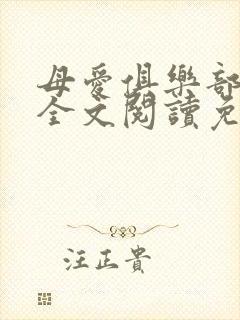 母愛俱樂部
全文閱讀免
汪正貴